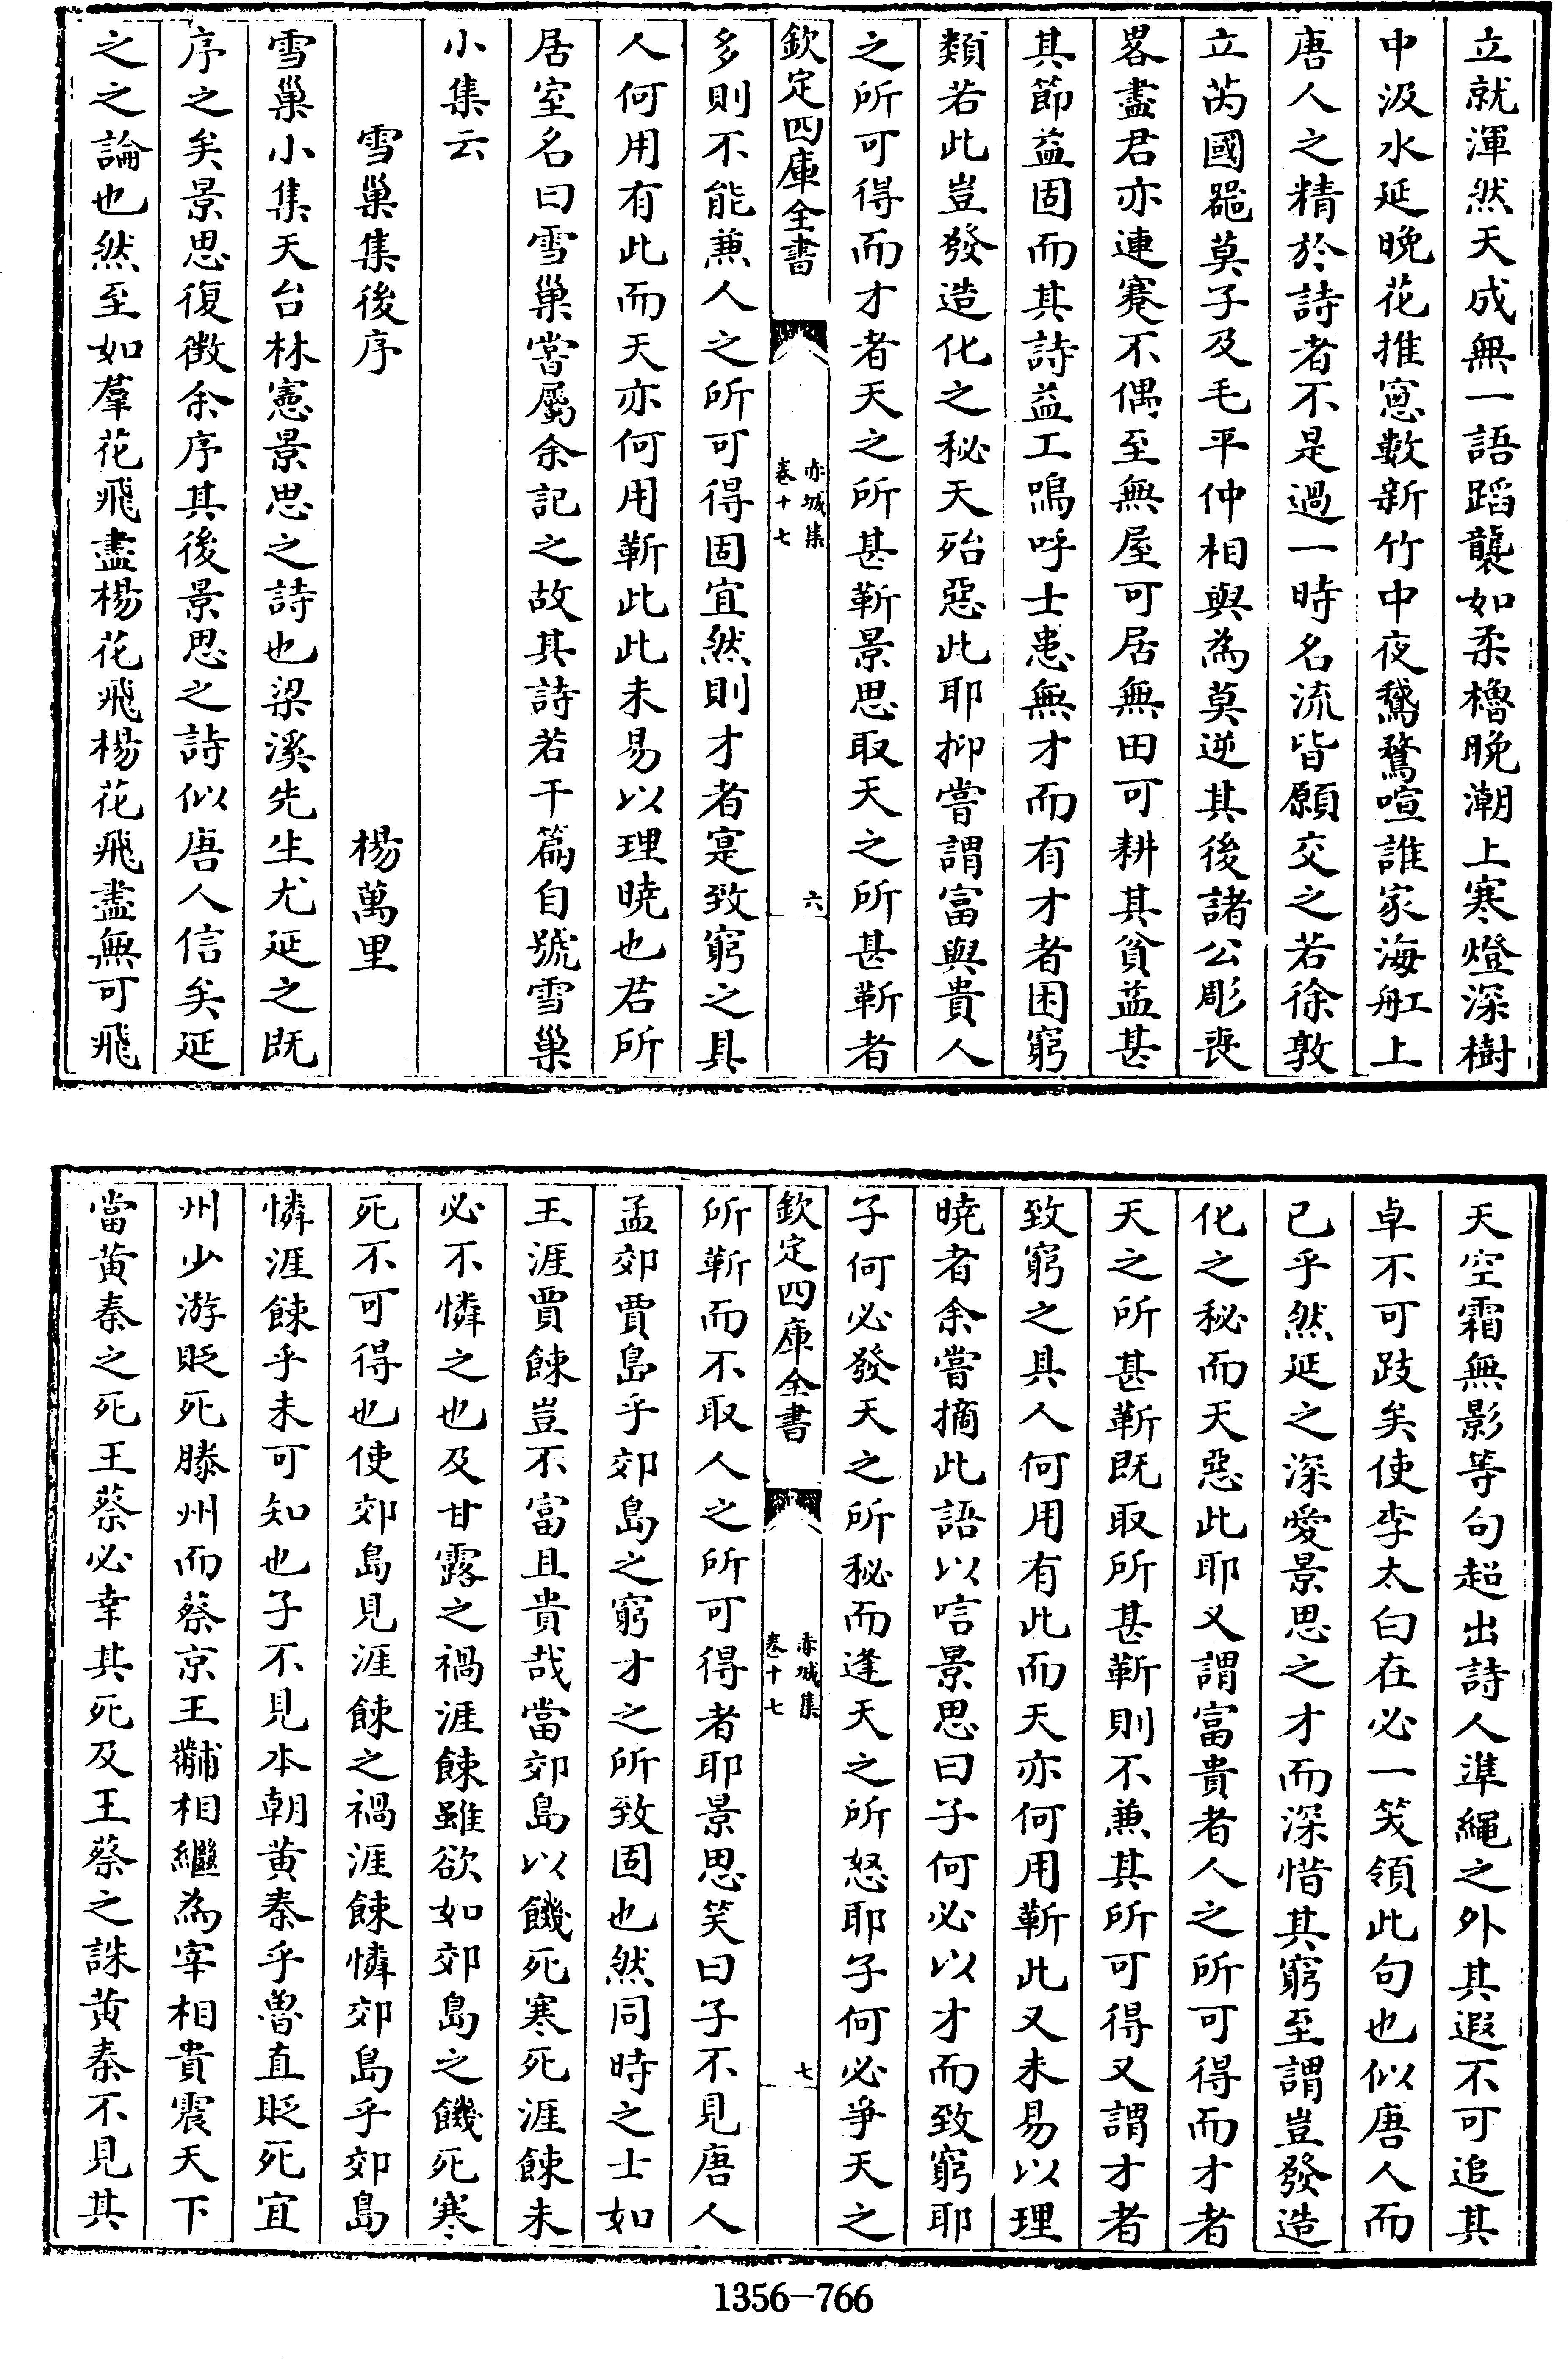 立就渾然天成無一語蹈襲如柔櫓晚潮上寒燈深樹
中汲水延晚花推窻數新竹中夜鵞鶩喧誰家海舡上
唐人之精於詩者不是過一時名流皆願交之若徐敦
立芮國噐莫子及毛平仲相與為莫逆其後諸公彫喪
畧盡君亦連蹇不偶至無屋可居無田可耕其貧益甚
其節益固而其詩益工嗚呼士患無才而有才者困窮
類若此豈發造化之秘天殆惡此耶抑嘗謂富與貴人
之所可得而才者天之所甚靳景思取天之所甚靳者
欽定四庫全書
赤城集
卷十七
六
多則不能兼人之所可得固宜然則才者寔致窮之具
人何用有此而天亦何用靳此此未易以理曉也君所
居室名曰雪巢嘗屬余記之故其詩若干篇自號雪巢
小集云
雪巢集後序
楊萬里
雪巢小集天台林憲景思之詩也梁溪先生尤延之既
序之矣景思復徵余序其後景思之詩似唐人信矣延
之之論也然至如羣花飛盡楊花飛楊花飛盡無可飛
天空霜無影等句超出詩人準繩之外其遐不可追其
卓不可跂矣使李太白在必一笑領此句也似唐人而
已乎然延之深愛景思之才而深惜其窮至謂豈發造
化之秘而天惡此耶又謂富貴者人之所可得而才者
天之所甚靳既取所甚靳則不兼其所可得又謂才者
致窮之具人何用有此而天亦何用靳此又未易以理
曉者余嘗摘此語以唁景思曰子何必以才而致窮耶
子何必發天之所秘而逢天之所怒耶子何必爭天之
欽定四庫全書
赤城集
卷十七
七
所靳而不取人之所可得者耶景思笑曰子不見唐人
孟郊賈島乎郊島之窮才之所致固也然同時之士如
王涯賈餗豈不富且貴哉當郊島以饑死寒死涯餗未
必不憐之也及甘露之禍涯餗雖欲如郊島之饑死寒
死不可得也使郊島見涯餗之禍涯餗憐郊島乎郊島
憐涯餗乎未可知也子不見本朝黄秦乎魯直貶死宜
州少游貶死滕州而蔡京王黼相繼為宰相貴震天下
當黄秦之死王蔡必幸其死及王蔡之誅黄秦不見其
1356-766